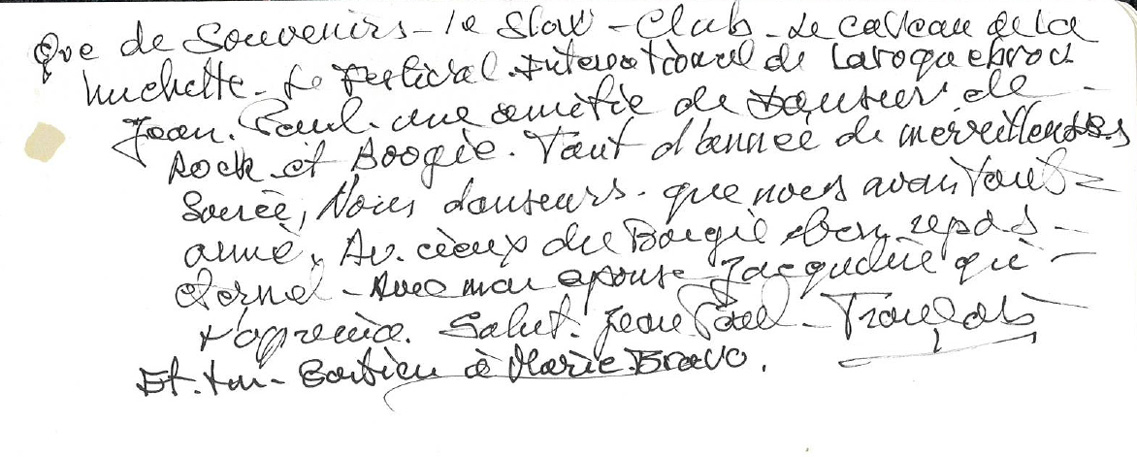 Que de Souvenirs - le Slow - Club - Le caveau de la
huchette - Le Festival International de Laroquebrou
Jean. Paul. une amitie de danseur de
Rock et Boogie. Tant d'année de merveilleuses
Soirée, Nous danseurs. que nous avan tant
aimé. Au cieux du Boogie bon repos
éternel - Avec mon épouse Jacqueline qui
t'apprécié. Salut. Jean Paul -
Et. ton - Soutien à Marie. Bravo.